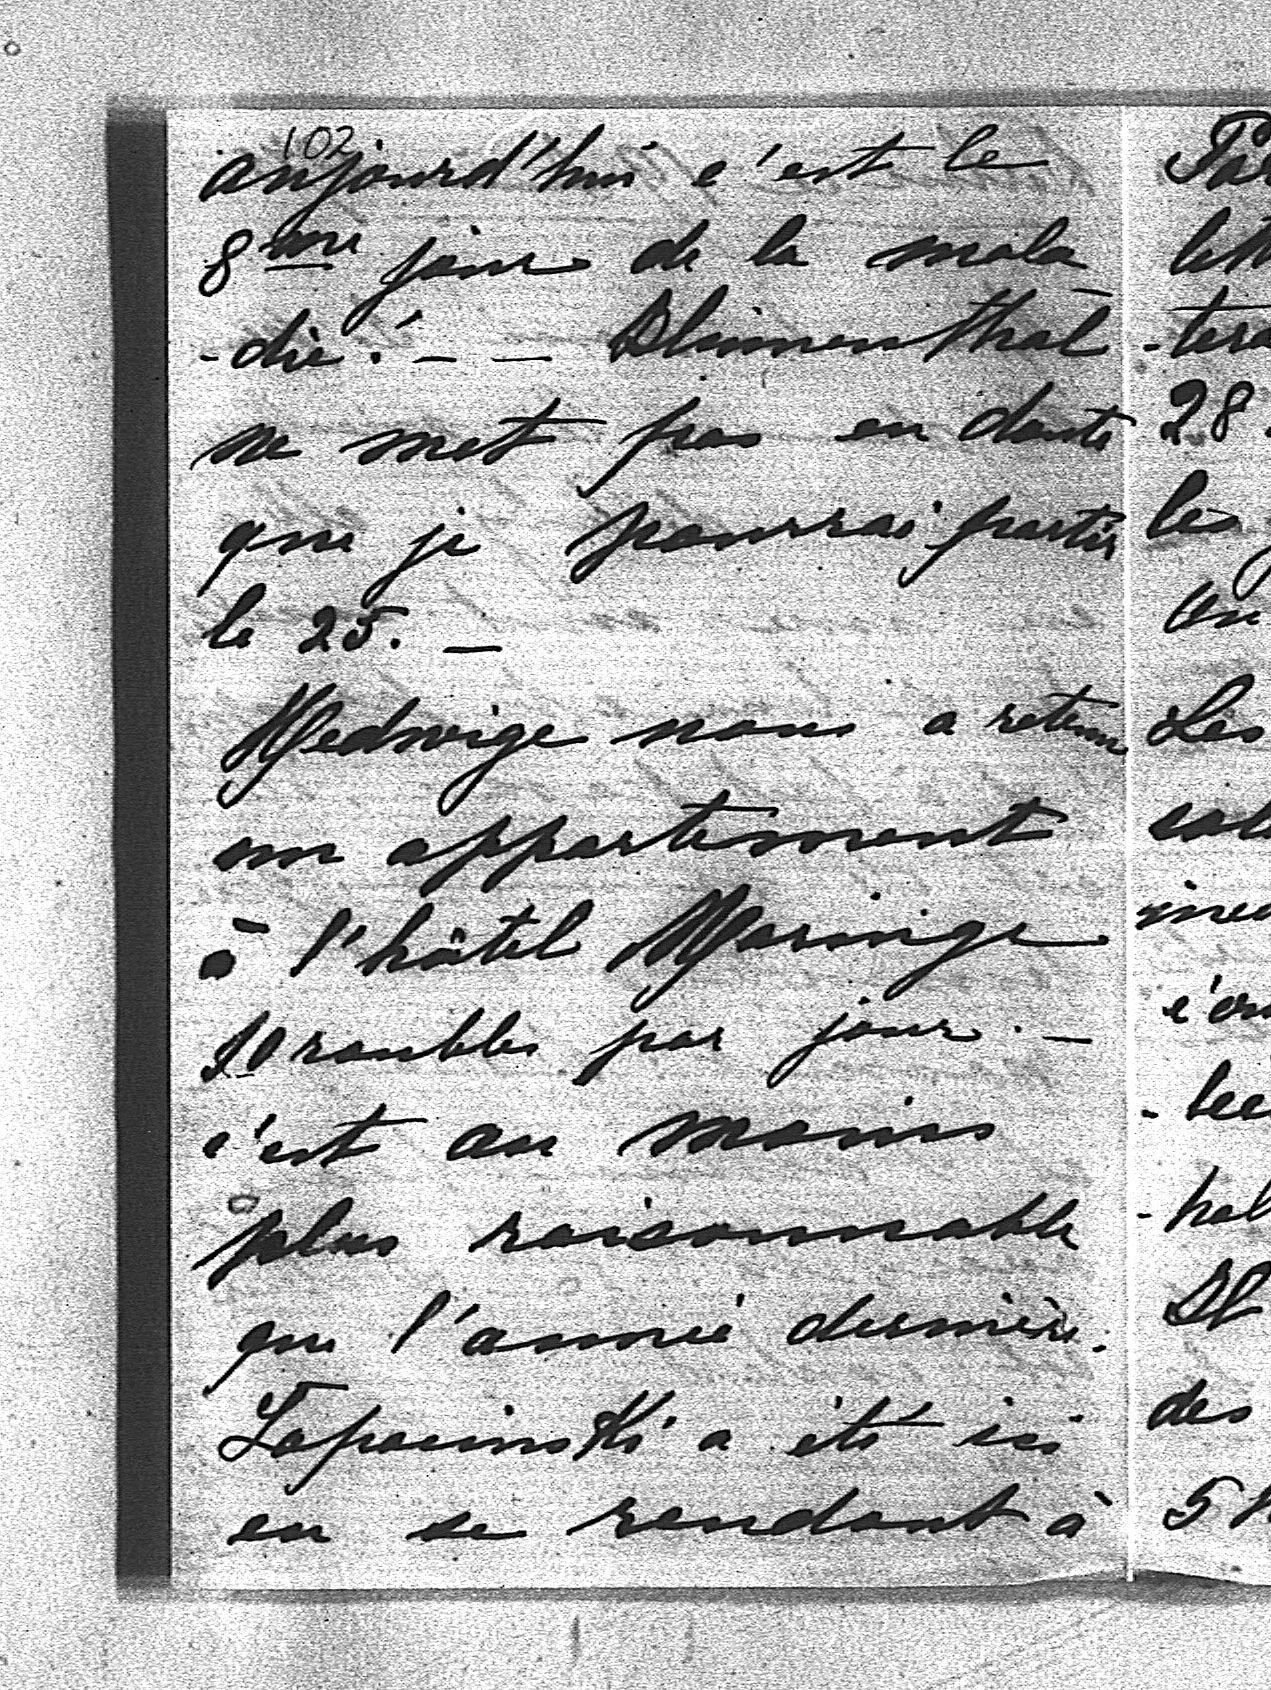 102
aujourd'hui c'est le
8me jour de la mala
-die! — — Blumenthal
ne met pas en doute
que je pourrai partir
le 25. —
Hedwige nous a retenu
un appartement
à l'hôtel
10 roubles par jour. —
c'est au moins
plus raisonnable
que l'année dernière.
Łopacinski a été ici
en se rendant à
28.
les
Les
des